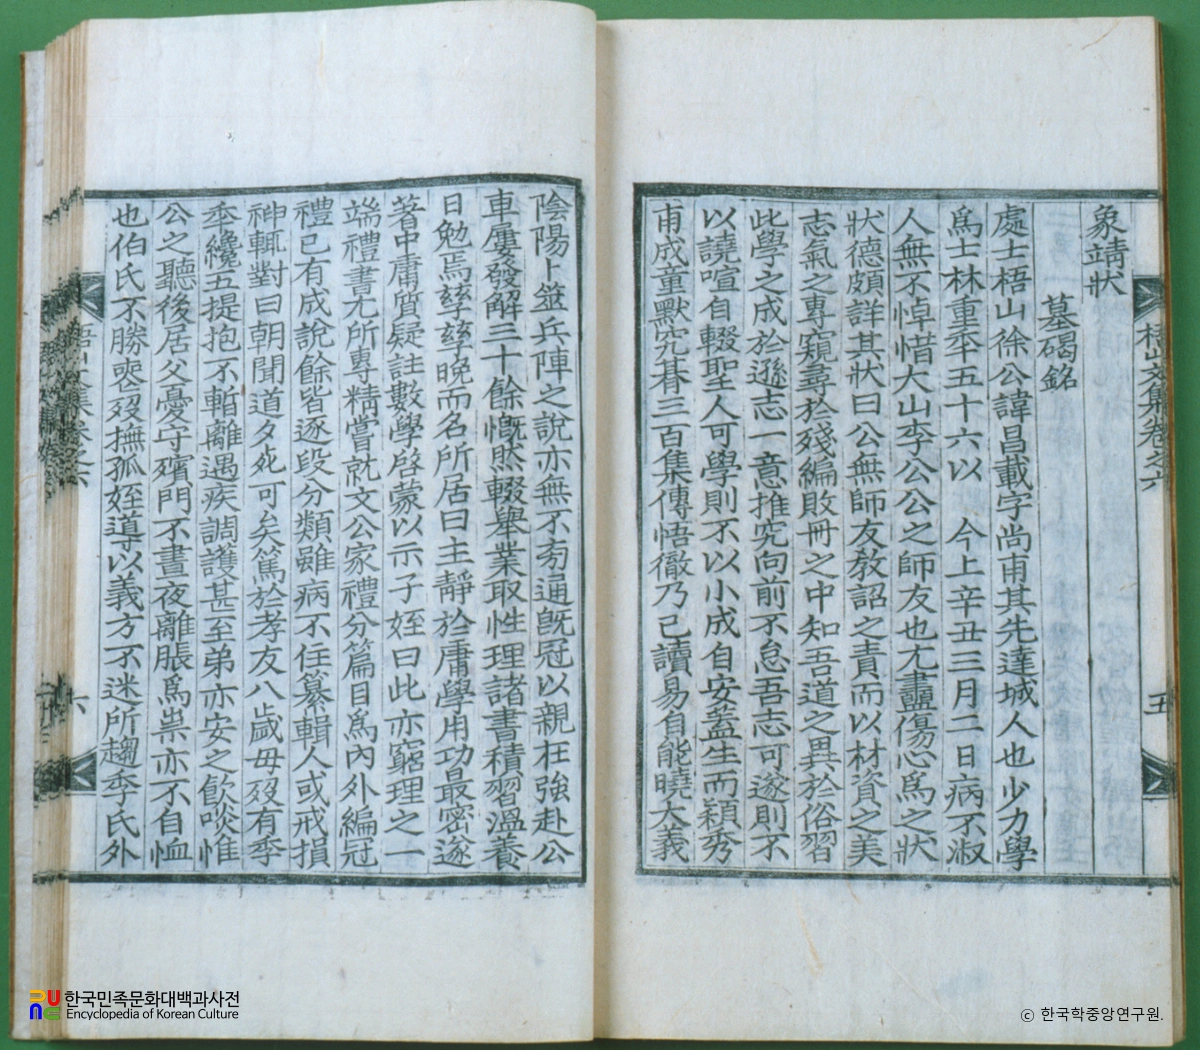 梧山文集卷之六
五
象靖狀
墓碣銘
處士梧山徐公諱昌載字尚甫其先達城人也少力學
爲士林重年五十六以 今上辛丑三月二日病不淑
人無不悼惜大山李公公之師友也尤盡傷心爲之狀
狀德頗詳其狀曰公無師友敎詔之責而以材資之美
志氣之專窺尋於殘編敗冊之中知吾道之異於俗習
此學之成於遜志一意推究向前不怠吾志可遂則不
以譊喧自輟聖人可學則不以小成自安蓋生而穎秀
甫成童默究朞三百集傳悟徹乃已讀易自能曉大義
陰陽卜筮兵陣之說亦無不旁通旣冠以親枉強赴公
車屢發解三十餘慨然輟擧業取性理諸書積習溫養
日勉焉孳孳晩而名所居曰主靜於庸學用功最密遂
著中庸質疑註數學啓蒙以示子姪曰此亦窮理之一
端禮書尤所專精嘗就文公家禮分篇目爲內外編冠
禮已有成說餘皆逐段分類雖病不任纂輯人或戒損
神輒對曰朝聞道夕死可矣篤於孝友八歲毋歿有季
年纔五提抱不暫離遇疾調護甚至弟亦安之飮啖惟
公之聽後居父憂守殯門不晝夜離脹爲祟亦不自恤
也伯氏不勝喪歿撫孤姪導以義方不迷所趨季氏外
梧山文集卷之六
六
한국민족문화대백과사전
Encyclopedia of Korean Culture
ⓒ 한국학중앙연구원.